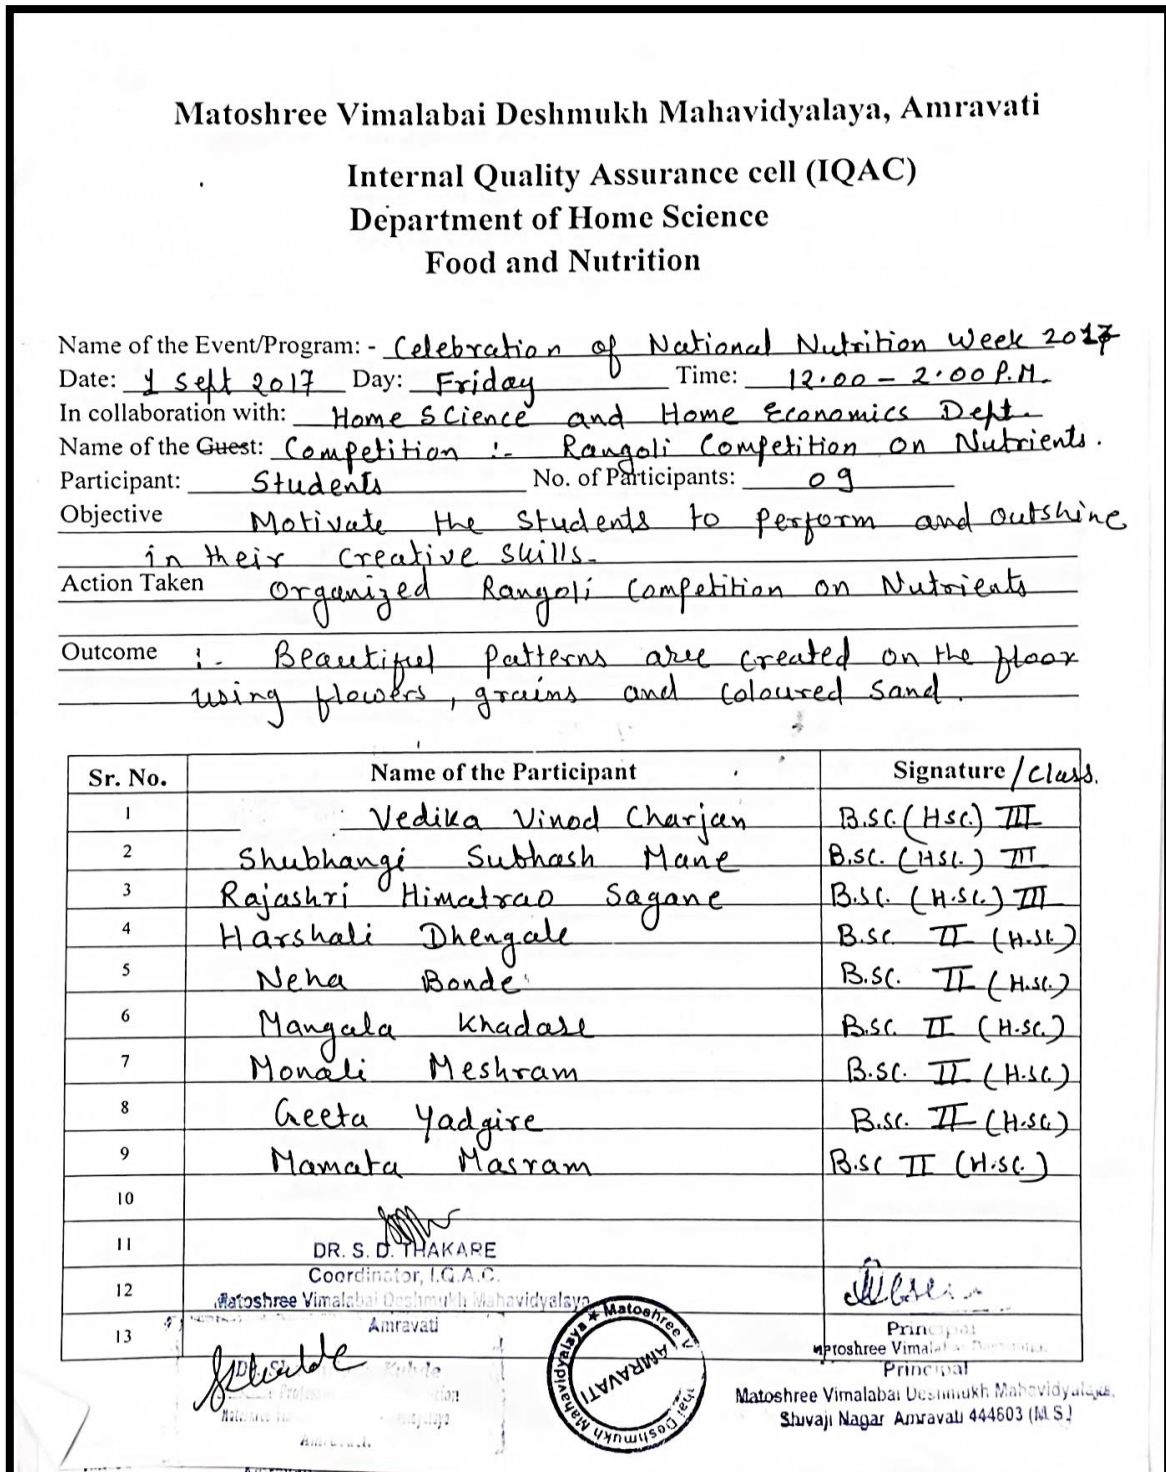 Matoshree Vimalabai Deshmukh Mahavidyalaya, Amravati
Internal Quality Assurance cell (IQAC)
Department of Home Science
Food and Nutrition
Name of the Event/Program: - Celebration of National Nutrition Week 2017
Date: 1 Sept 2017 Day: Friday Time: 12.00 - 2.00 P.M.
In collaboration with: Home Science and Home Economics Dept.
Name of the Guest: Competition :- Rangoli Competition on Nutrients.
Participant: Students No. of Participants: 09
Objective Motivate the Students to perform and outshine
in their creative skills.
Action Taken Organized Rangoli Competition on Nutrients
Outcome :- Beautiful patterns are created on the floor
using flowers, grains and coloured sand.
Sr. No. Name of the Participant Signature/Class.
1 Vedika Vinod Charjan B.SC.(HSC.) III
2 Shubhangi Subhash Mane B.sc. (HSC.) III
3 Rajashri Himatrao Sagane B.Sc. (H.Sc.) III
4 Harshali Dhengale B.sc. II (H.sc.)
5 Neha Bonde B.sc. II (H.sc.)
6 Mangala Khadase B.sc. II (H.sc.)
7 Monali Meshram B.sc. II (H.sc.)
8 Geeta Yadgire B.sc. II (H.sc.)
9 Mamata Masram B.sc II (H.sc.)
10
11 DR. S. D. THAKARE
12 Coordinator, I.Q.A.C.
Matoshree Vimalabai Deshmukh Mahavidyalaya
13 Amravati
Principal
Matoshree Vimalabai
Principal
Matoshree Vimalabai Deshmukh Mahavidyalaya,
Shivaji Nagar Amravati 444603 (M.S.)
Matoshree V bai Deshmukh Mahavidyalaya ★
AMRAVATI